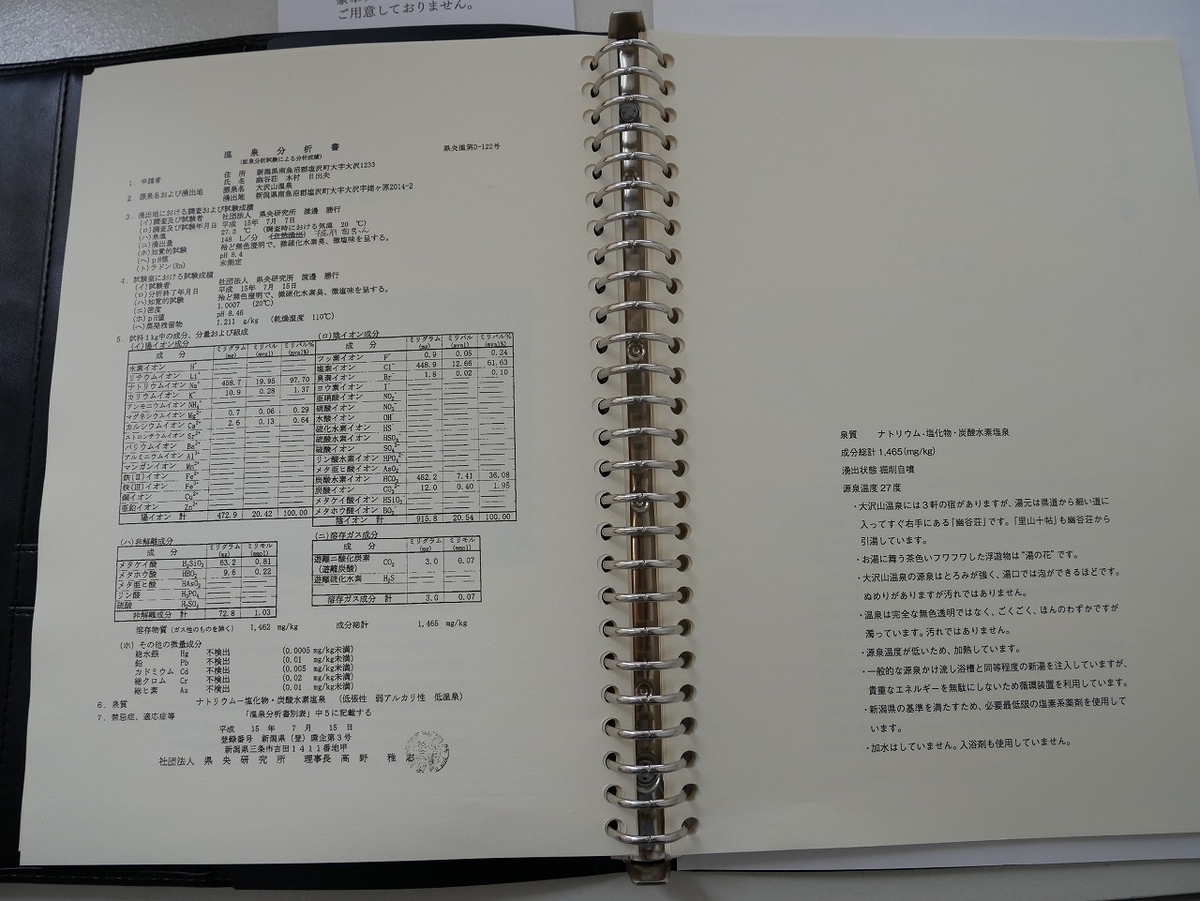 ご用意しておりません。
温 泉 分 析 書
(鉱泉分析試験による分析成績)
県央温第D-122号
1. 申請者 住 所 新潟県南魚沼郡塩沢町大字大沢1233
氏 名 幽谷荘 木村 日出夫
2. 源泉名および湧出地 源泉名 大沢山温泉
湧出地 新潟県南魚沼郡塩沢町大字大沢字姥ヶ原2014-2
3. 湧出地における調査および試験成績
(イ)調査及び試験者 社団法人 県央研究所 渡邊 勝行
(ロ)調査及び試験年月日 平成 15年 7月 7日
(ハ)泉温 27.2 ℃ (調査時における気温 20 ℃)
(ニ)湧出量 148 L/分 (自然湧出)
(ホ)知覚的試験 殆ど無色澄明で、微硫化水素臭、微塩味を呈する。
(ヘ)pH値 pH 8.4
(ト)ラドン(Rn) 未測定
4. 試験室における試験成績
(イ)試験者 社団法人 県央研究所 渡邊 勝行
(ロ)分析終了年月日 平成 15年 7月 15日
(ハ)知覚的試験 殆ど無色澄明で、微硫化水素臭、微塩味を呈する。
(ニ)密度 1.0007 (20℃)
(ホ)pH値 pH 8.46
(ヘ)蒸発残留物 1.211 g/kg (乾燥温度 110℃)
5. 試料1kg中の成分、分量および組成
(イ)陽イオン成分
成 分 ミリグラム(mg) ミリバル(mval) ミリバル%(mval%)
水素イオン H⁺
リチウムイオン Li⁺
ナトリウムイオン Na⁺ 458.7 19.95 97.70
カリウムイオン K⁺ 10.9 0.28 1.37
アンモニウムイオン NH₄⁺
マグネシウムイオン Mg²⁺ 0.7 0.06 0.29
カルシウムイオン Ca²⁺ 2.6 0.13 0.64
ストロンチウムイオン Sr²⁺
バリウムイオン Ba²⁺
アルミニウムイオン Al³⁺
マンガンイオン Mn²⁺
鉄(Ⅱ)イオン Fe²⁺
鉄(Ⅲ)イオン Fe³⁺
銅イオン Cu²⁺
亜鉛イオン Zn²⁺
陽イオン 計 472.9 20.42 100.00
(ロ)陰イオン成分
成 分 ミリグラム(mg) ミリバル(mval) ミリバル%(mval%)
フッ素イオン F⁻ 0.9 0.05 0.24
塩素イオン Cl⁻ 448.9 12.66 61.63
臭素イオン Br⁻ 1.8 0.02 0.10
ヨウ素イオン I⁻
亜硝酸イオン NO₂⁻
硝酸イオン
水酸イオン OH⁻
硫化水素イオン HS⁻
硫酸水素イオン HSO₄⁻
硫酸イオン SO₄²⁻
リン酸水素イオン HPO₄²⁻
メタ亜ヒ酸イオン AsO₂⁻
炭酸水素イオン HCO₃⁻ 452.2 7.41 36.08
炭酸イオン CO₃²⁻ 12.0 0.40 1.95
メタケイ酸イオン HSiO₃⁻
メタホウ酸イオン BO₂⁻
陰イオン 計 915.8 20.54 100.00
(ハ)非解離成分
成 分 ミリグラム(mg) ミリモル(mmol)
メタケイ酸 H₂SiO₃ 63.2 0.81
メタホウ酸 HBO₂ 9.6 0.22
メタ亜ヒ酸 HAsO₂
リン酸 H₃PO₄
硫酸 H₂SO₄
非解離成分 計 72.8 1.03
(ニ)溶存ガス成分
成 分 ミリグラム(mg) ミリモル(mmol)
遊離二酸化炭素 CO₂ 3.0 0.07
(遊離炭酸)
遊離硫化水素 H₂S
溶存ガス成分 計 3.0 0.07
溶存物質(ガス性のものを除く) 1,462 mg/kg 成分総計 1,465 mg/kg
(ホ) その他の微量成分
総水銀 Hg 不検出 (0.0005 mg/kg未満)
鉛 Pb 不検出 (0.01 mg/kg未満)
カドミウム Cd 不検出 (0.005 mg/kg未満)
総クロム Cr 不検出 (0.02 mg/kg未満)
総ヒ素 As 不検出 (0.01 mg/kg未満)
6. 泉質 ナトリウム−塩化物・炭酸水素塩泉 (低張性 弱アルカリ性 低温泉)
7. 禁忌症、適応症等 「温泉分析書別表」中5に記載する
平成 15 年 7 月 15 日
登録番号 新潟県(登)環企第3号
新潟県三条市吉田1411番地甲
社団法人 県 央 研 究 所 理事長 高 野 雅 志
泉質 ナトリウム-塩化物・炭酸水素塩泉
成分総計 1,465(mg/kg)
湧出状態 掘削自噴
源泉温度 27度
・大沢山温泉には3軒の宿がありますが、湯元は県道から細い道に
入ってすぐ右手にある「幽谷荘」です。「里山十帖」も幽谷荘から
引湯しています。
・お湯に舞う茶色いフワフワした浮遊物は“湯の花”です。
・大沢山温泉の源泉はとろみが強く、湯口では泡ができるほどです。
ぬめりがありますが汚れではありません。
・温泉は完全な無色透明ではなく、ごくごく、ほんのわずかですが
濁っています。汚れではありません。
・源泉温度が低いため、加熱しています。
・一般的な源泉かけ流し浴槽と同等程度の新湯を注入していますが、
貴重なエネルギーを無駄にしないため循環装置を利用しています。
・新潟県の基準を満たすため、必要最低限の塩素系薬剤を使用して
います。
・加水はしていません。入浴剤も使用していません。